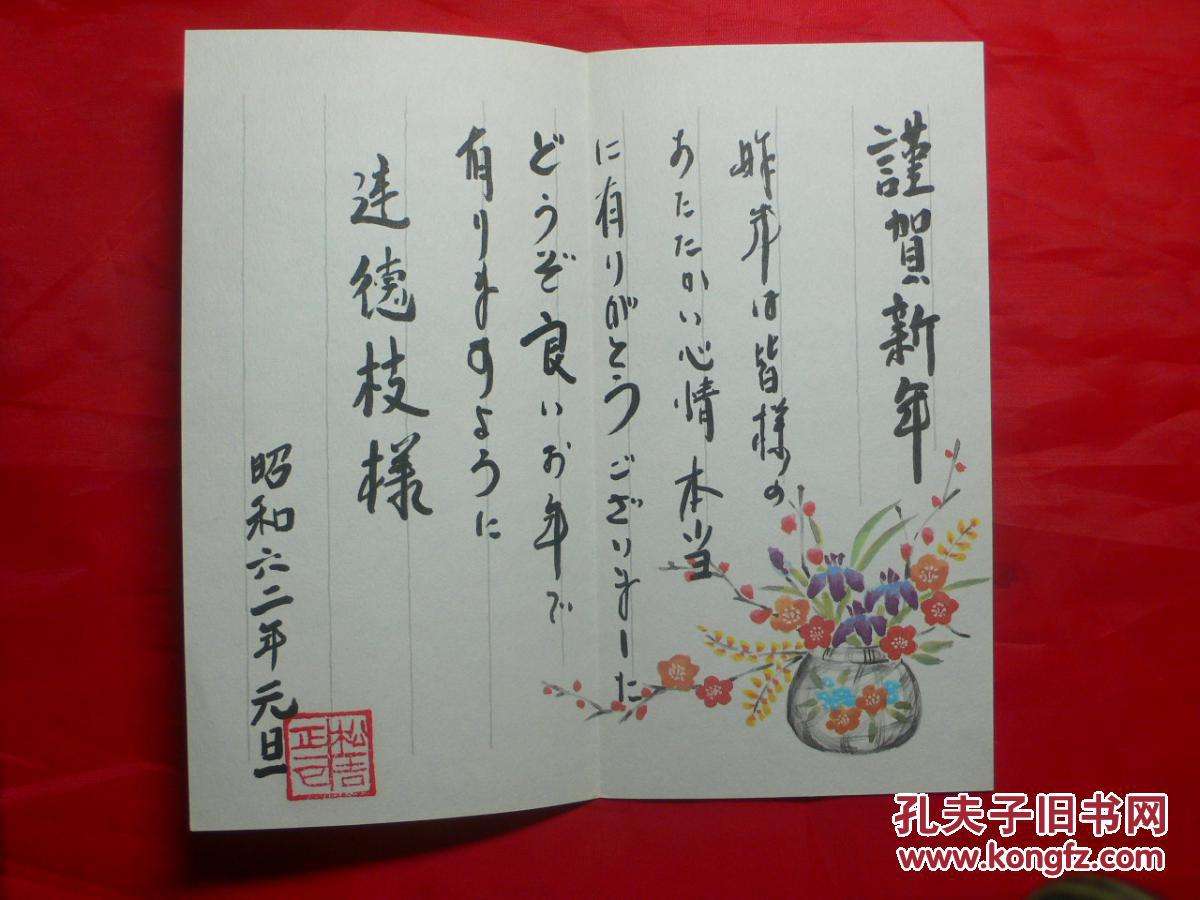 謹賀新年
昨年は皆様の
あたたかい心情 本当
に有りがとうございました
どうぞ良いお年で
有りますのように
達德枝様
昭和六二年元旦
松吉
正己
孔夫子旧书网
www.kongfz.com